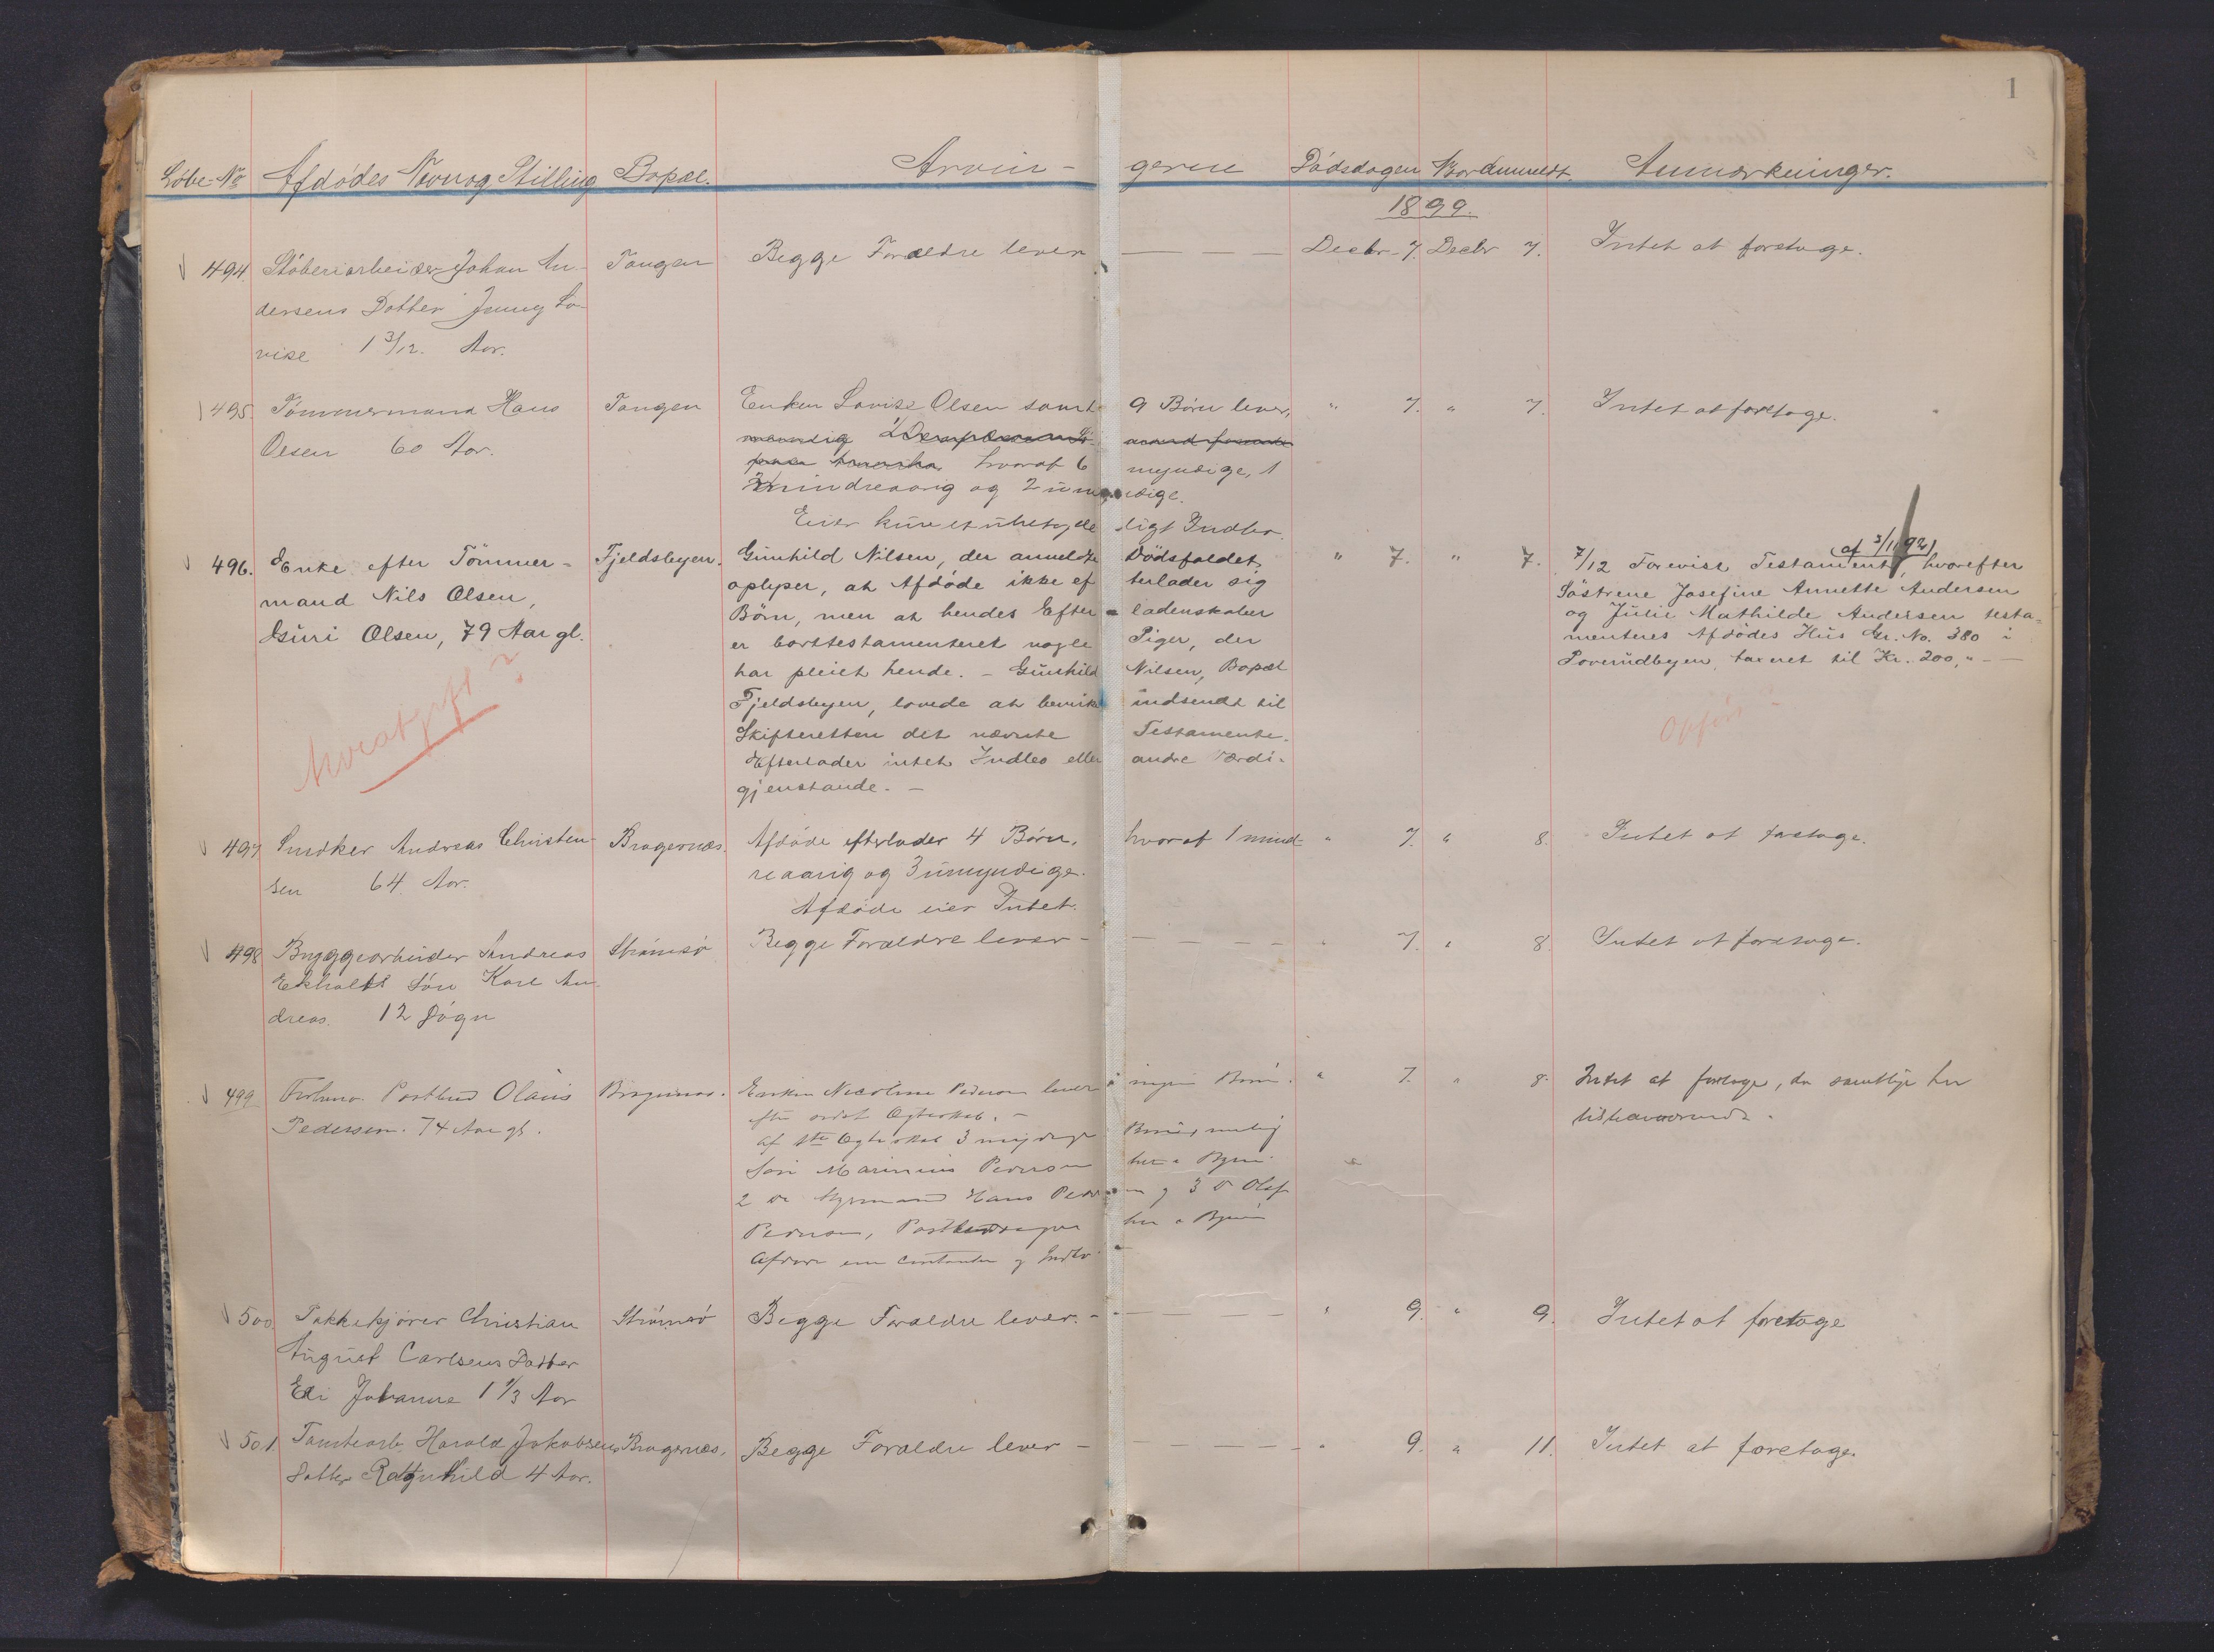 1
Løbe-No Afdødes Navn og Stilling Bopæl. Arvin- gerne Dødsdagen Naar anmeldt. Anmærkninger.
1899.
494. Støberiarbeider Johan An- Tangen Begge Forældre lever — — — Decbr 7. Decbr 7. Intet at foretage.
dersens Datter Jenny Lo-
vise 1 3/12. Aar.
495. Tømmermand Hans Tangen Enken Lovise Olsen samt 9 Børn lever, " 7. " 7. Intet at foretage.
Olsen 60 Aar.
hvoraf 6 myndige, 1
mindreaarig og 2 umyndige.
Eier kun et ubetydeligt Indbo.
496. Enke efter Tömmer- Fjeldsbyen. Gunhild Nilsen, der anmeldte Dödsfaldet, " 7. " 7. 7/12 Forevist Testament (af 3/11 92), hvorefter
mand Nils Olsen, oplyser, at Afdöde ikke ef terlader sig Söstrene Josefine Annette Andersen
Guri Olsen, 79 Aar gl. Börn, men at hendes Efter- ladenskaber og Julie Mathilde Andersen testa-
er borttestamenteret nogle Piger, der menteres Afdödes Hus Gr. No. 380 i
har pleiet hende. - Gunhild Nilsen, Bopæl Toverudbyen, taxeret til Kr. 200,"-
Fjeldsbyen, lovede at bevirke indsendt til
Skifteretten det nævnte Testamente.
Efterlader intet Indbo eller andre Værdi-
gjenstande. -
497 Snedker Andreas Christen- Bragernæs. Afdøde efterlader 4 Børn, hvoraf 1 mind- " 7. " 8. Intet at foretage.
sen 64. Aar. reaarig og 3 umyndige.
Afdøde eier Intet.
498 Bryggearbeider Andreas Strømsø Begge Forældre lever - — — — " 7. " 8. Intet at foretage.
Ekholdt Søn Karl An-
dreas. 12 Døgn
499 Postbud Olaus Bragernæs. Enken Nicoline Pedersen lever ingen Børn. " 7. " 8. Intet at foretage, da samtlige her
Pedersen. 74 Aar gl. efter sidst Ægteskab. - tilstedeværende.
af 1ste Ægteskab 3 myndige Børn, nemlig
Søn Marinius Pedersen her i Byen
2 Styrmand Hans Pedersen og 3 Olaf
Pedersen, her i Byen
Afdøde Contanter og Indbo
500. Pakkekjører Christian Strømsø Begge Forældre lever. - — — — " 9. " 9. Intet at foretage
August Carlsens Datter
Eli Johanne 1 1/3 Aar
501. Tomtearb. Harald Jakobsens Bragernæs, Begge Forældre lever - — — — " 9. " 11. Intet at foretage.
Datter Ragnhild 4 Aar.